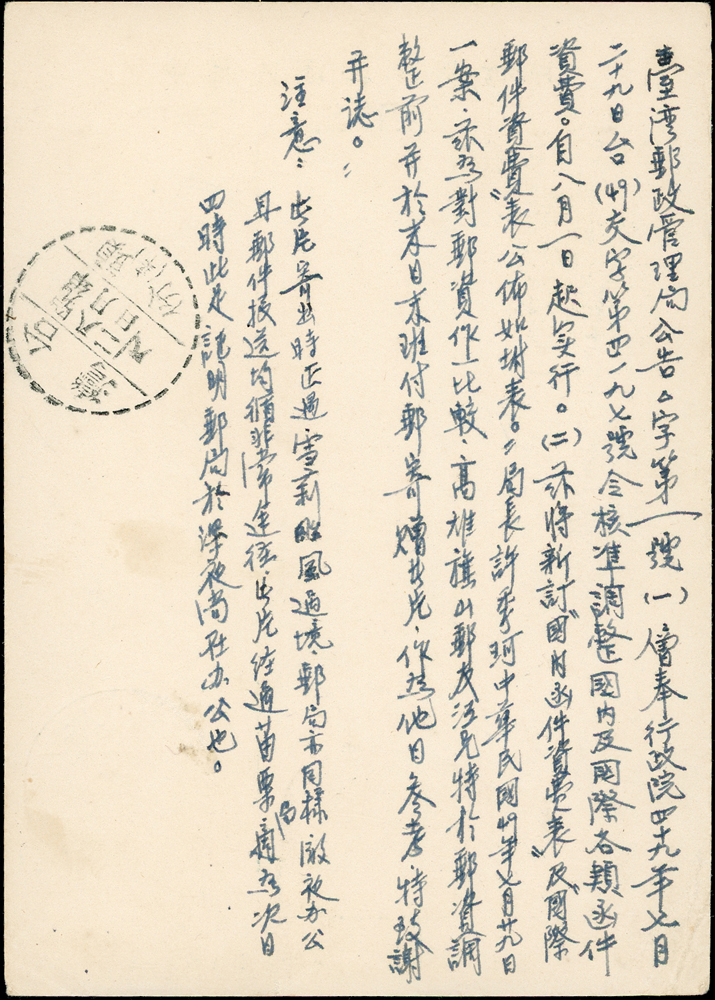 臺灣郵政管理局公告公字第一號(一)僧奉行政院四十九年七月
二十九日台(49)交字第四一九七號令核准調整國內及國際各類函件
資費。自八月一日起实行。(二)茲將新訂〝國內函件資費表〞及〝國際
郵件資費表〞公佈如坿表。〃局長許季珂中華民國49年七月廿九日
一案.茲為對郵資作一比較、高雄旗山郵友江兄特於郵資調
整前并於末日末班付郵寄贈此片.作為他日參考.特致謝
并誌。〃
注意:此片寄出時正遇.雪莉颱風過境.郵局亦同樣徹夜办公
且郵件投送均循非常途徑.此片经過苗栗局為次日
四時此足証明郵局於深夜尚在办公也。